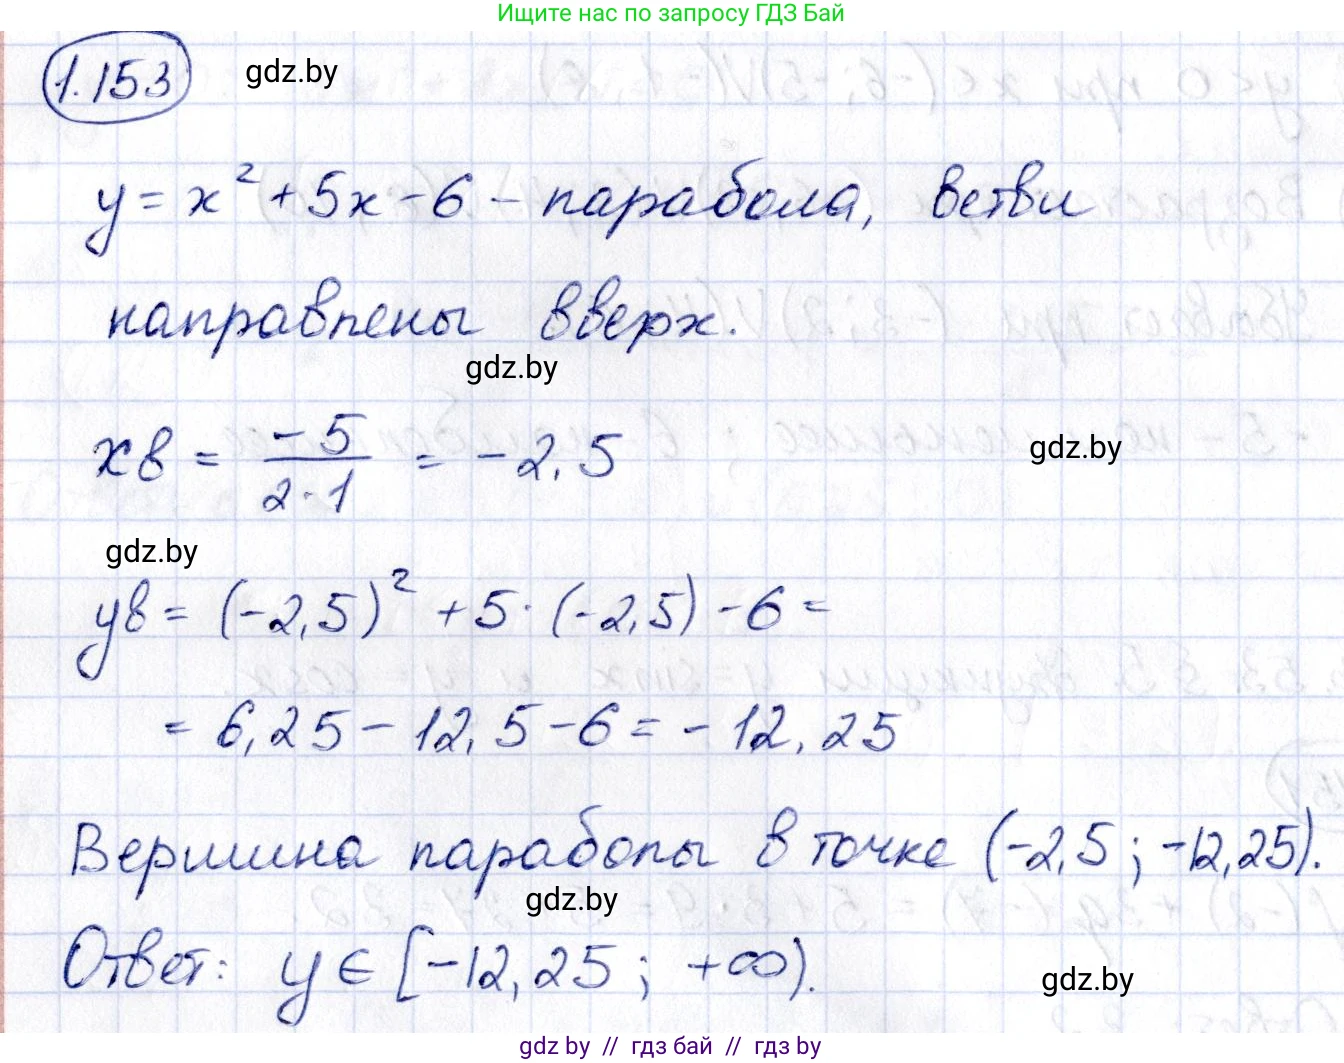 Ищите нас по запросу ГДЗ Бай
1.153 gdz.by
y = x² + 5x - 6 - парабола, ветви
направлены вверх.
gdz.by
xв = -5/(2·1) = -2,5
gdz.by
gdz.by
yв = (-2,5)² + 5·(-2,5) - 6 =
= 6,25 - 12,5 - 6 = -12,25
Вершина параболы в точке (-2,5; -12,25).
gdz.by
Ответ: y ∈ [-12,25; +∞).
gdz.by
gdz by // гдз бай // гдз by